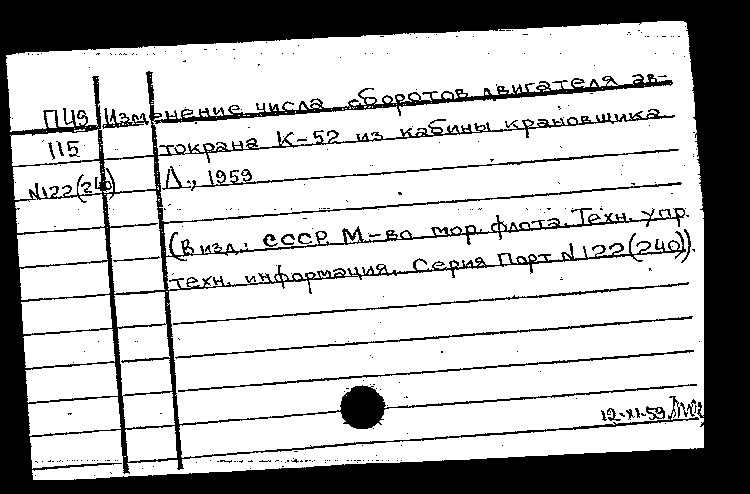 П49 Изменение числа оборотов двигателя ав-
115 токрана К-52 из кабины крановщика
N122(240) Л., 1959
(В изд.: СССР. М-во мор. флота. Техн. упр.
техн. информация. Серия Порт N122(240)).
12-XI-59